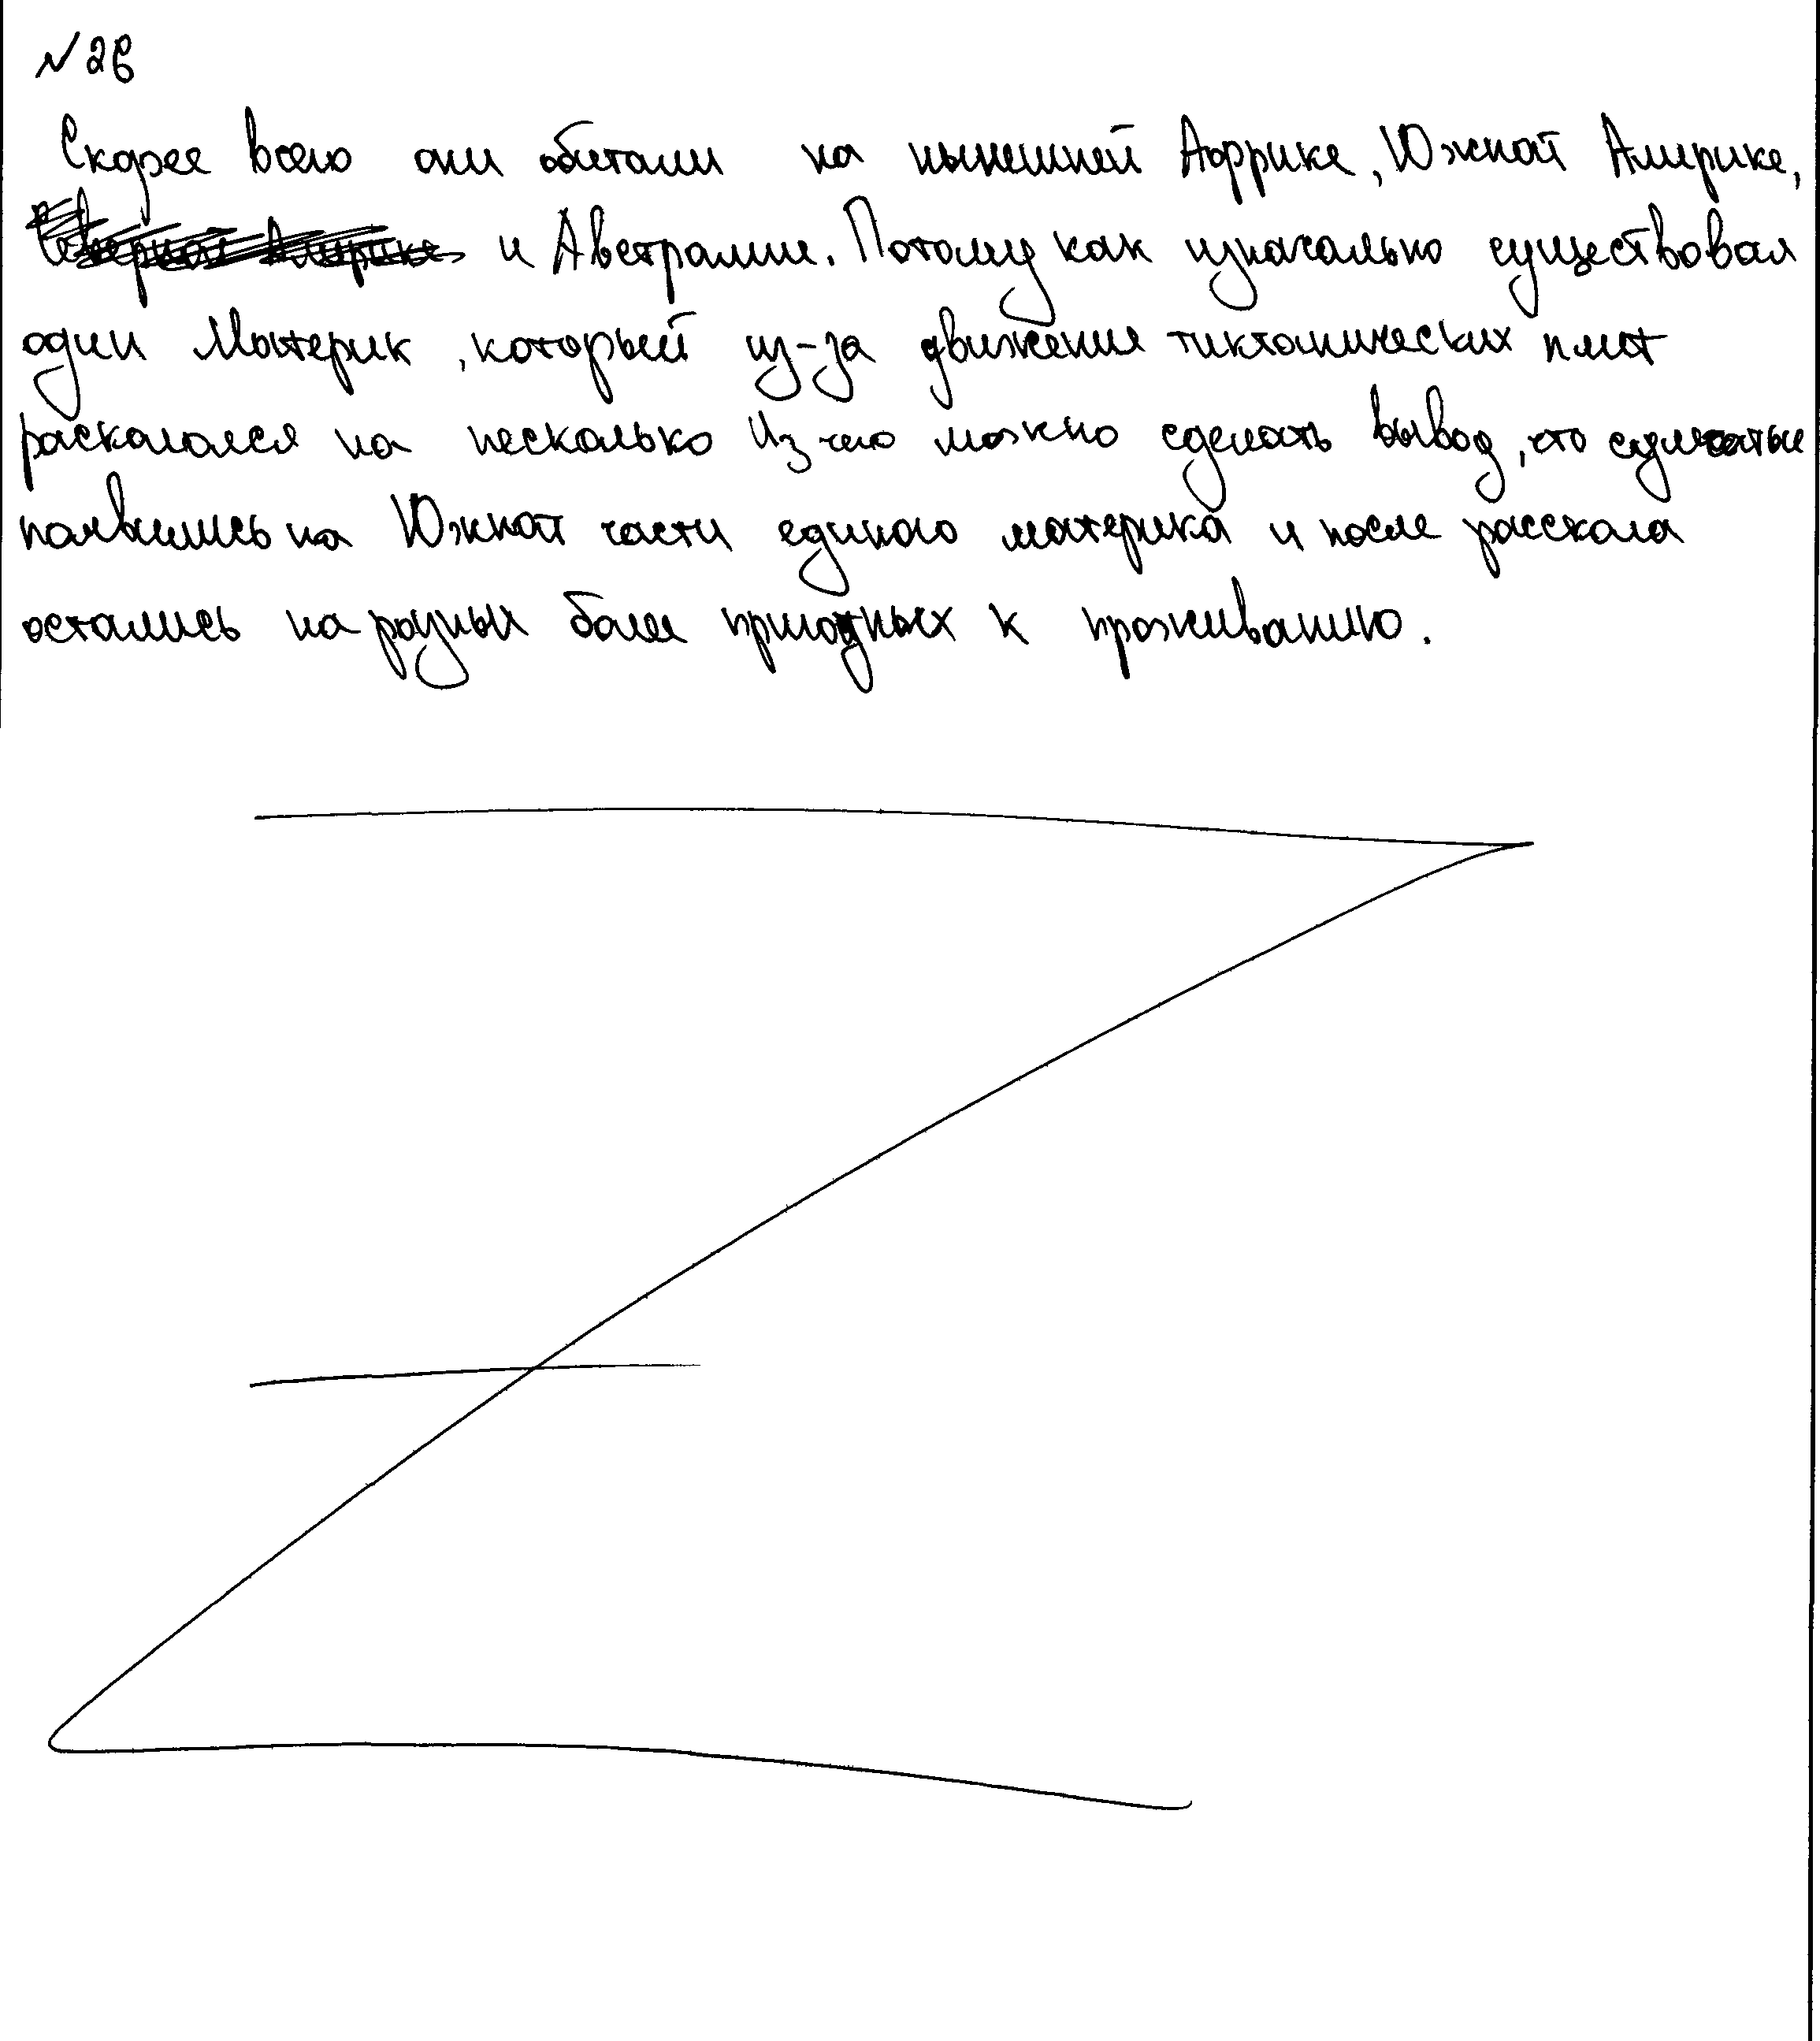 №26
Скорее всего они обитали на нынешней Афррике, Южной Америке,
и Австралии. Потому как изначально существовал
один Материк, который из-за движения тиктонических плит
раскололся на несколько Из чего можно сделать вывод, что сумчатые
появились на Южной части единого материка и после расскола
остались на разных более пригодных к проживанию.